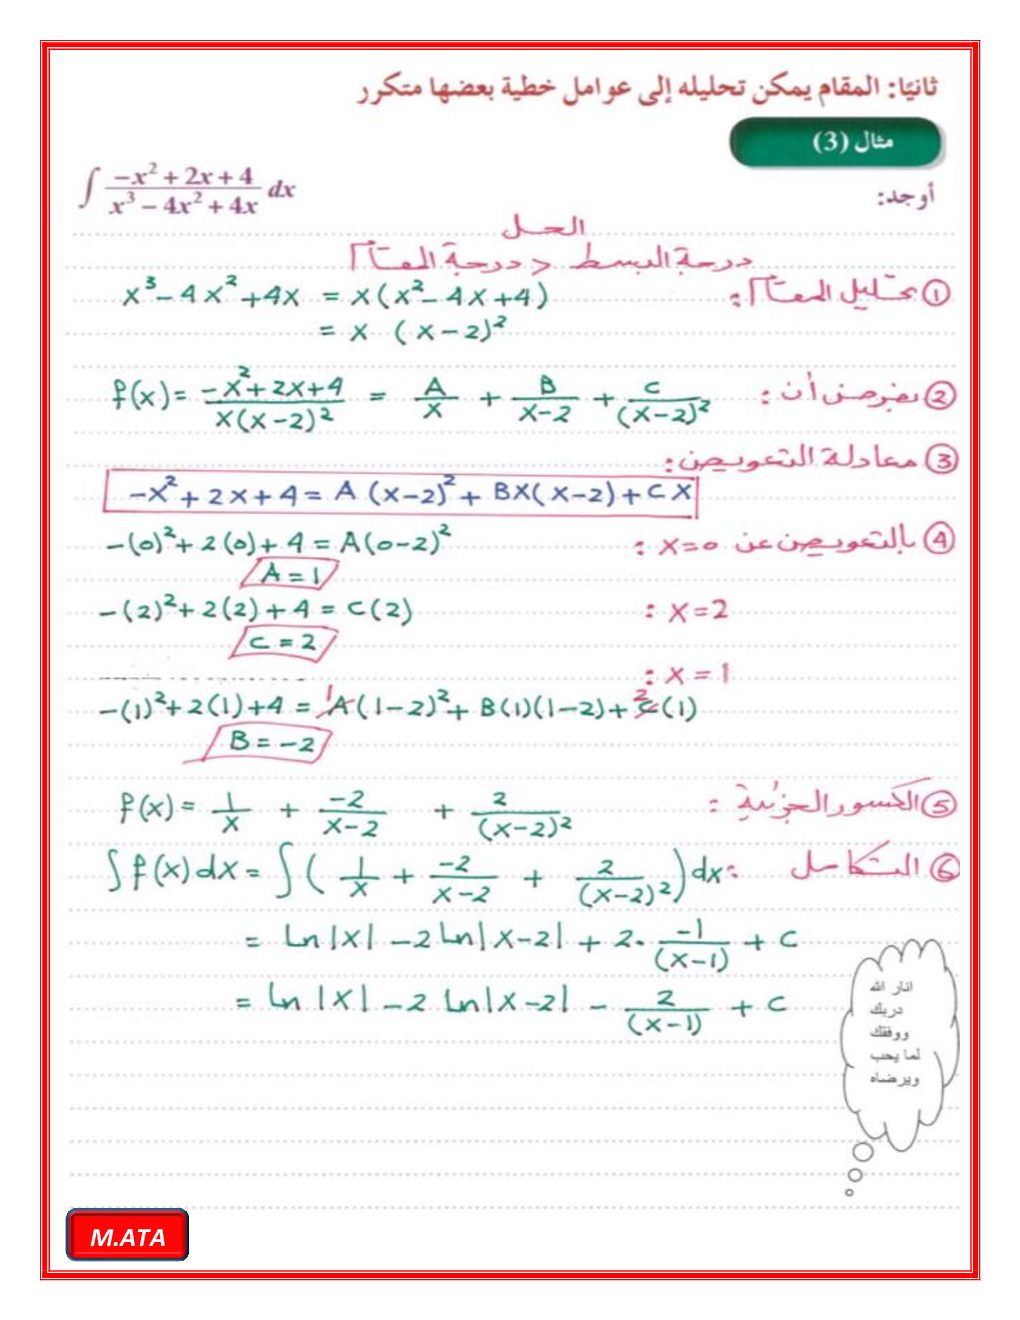 ثانيًا: المقام يمكن تحليله إلى عوامل خطية بعضها متكرر
مثال (3)
أوجد: ∫ (−x² + 2x + 4)/(x³ − 4x² + 4x) dx
الحل
درجة البسط < درجة المقام
① تحليل المقام: x³ − 4x² + 4x = x(x² − 4x + 4)
= x (x − 2)²
② نفرض أن: f(x) = (−x² + 2x + 4)/(x(x − 2)²) = A/x + B/(x − 2) + C/(x − 2)²
③ معادلة التعويض:
−x² + 2x + 4 = A(x − 2)² + Bx(x − 2) + Cx
④ بالتعويض عن x = 0: −(0)² + 2(0) + 4 = A(0 − 2)²
A = 1
x = 2: −(2)² + 2(2) + 4 = C(2)
C = 2
x = 1:
−(1)² + 2(1) + 4 = A 1 (1 − 2)² + B(1)(1 − 2) + C 2 (1)
B = −2
⑤ الكسور الجزئية: f(x) = 1/x + −2/(x − 2) + 2/(x − 2)²
⑥ التكامل: ∫ f(x) dx = ∫ (1/x + −2/(x − 2) + 2/(x − 2)²) dx
= Ln|x| − 2 Ln|x − 2| + 2 · −1/(x − 1) + C
= Ln|x| − 2 Ln|x − 2| − 2/(x − 1) + C
انار الله
دربك
ووفقك
لما يحب
ويرضاه
M.ATA